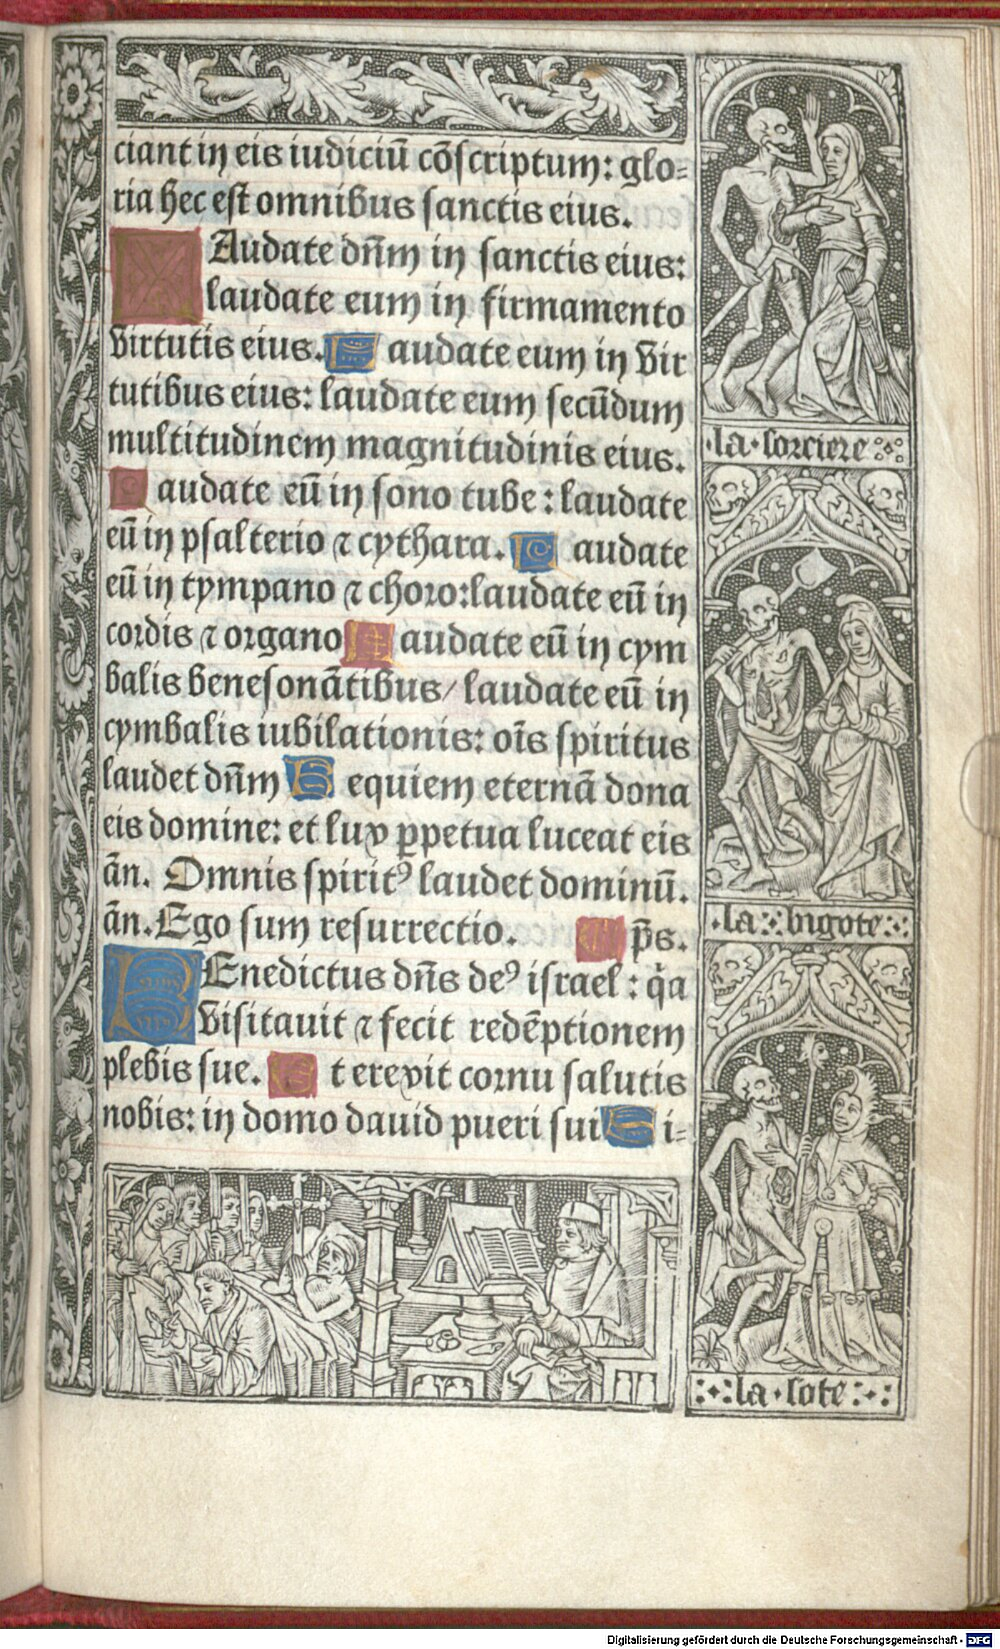 ciant in eis iudiciū cōscriptum: glo=
ria hec est omnibus sanctis eius.
Audate dn̄m in sanctis eius:
laudate eum in firmamento
virtutis eius. audate eum in vir
tutibus eius: laudate eum secūdum
multitudinem magnitudinis eius.
audate eū in sono tube: laudate
eū in psalterio ⁊ cythara. L audate
eū in tympano ⁊ choro: laudate eū in
cordis ⁊ organo L audate eū in cym
balis benesonātibus/ laudate eū in
cymbalis iubilationis: oīs spiritus
laudet dn̄m R equiem eternā dona
eis domine: et lux ꝑpetua luceat eis
ān. Omnis spiritꝰ laudet dominū.
ān. Ego sum resurrectio. p̄s.
BEnedictus dn̄s deꝰ israel: qͣa
visitavit ⁊ fecit redēptionem
plebis sue. E t erexit cornu salutis
nobis: in domo dauid pueri sui S i=
·la·sorciere
·la·bigote
la·sote
Digitalisierung gefördert durch die Deutsche Forschungsgemeinschaft - DFG